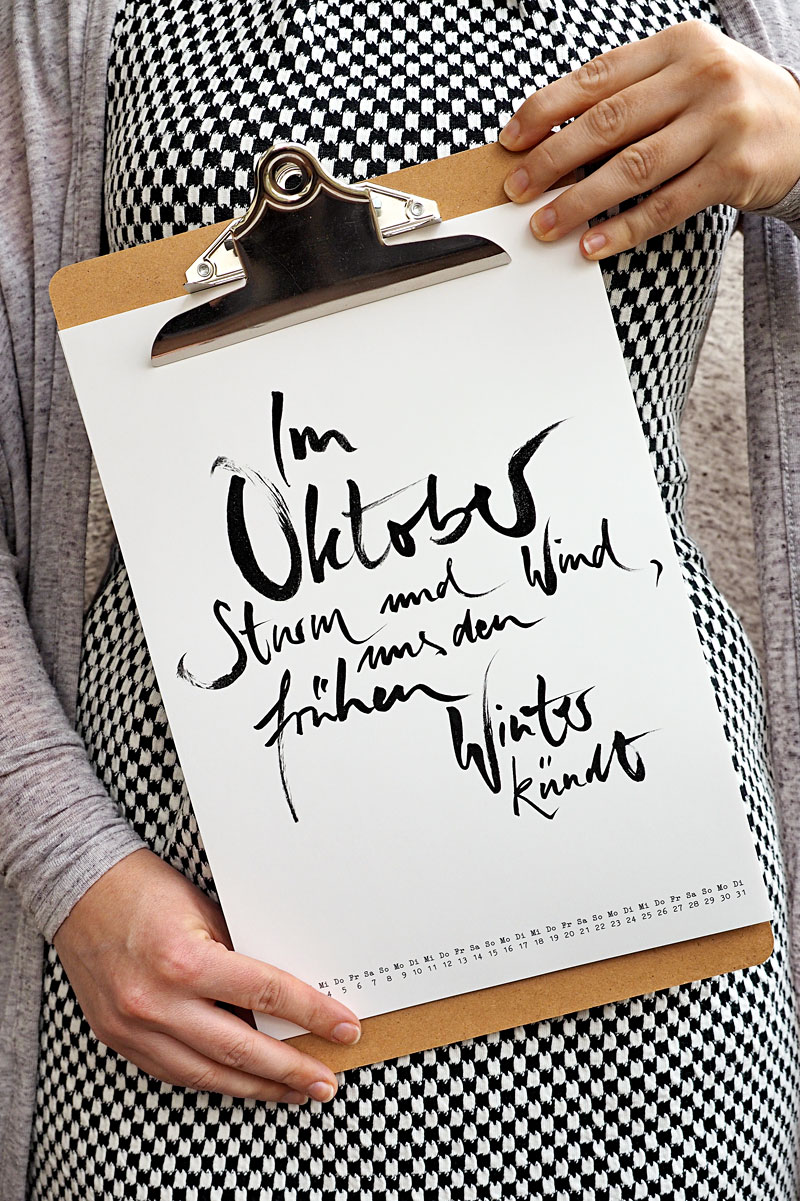 Im
Oktober
Sturm und Wind,
uns den
frühen
Winter
kündt
Mi Do Fr Sa So Mo Di Mi Do Fr Sa So Mo Di Mi Do Fr Sa So Mo Di Mi Do Fr Sa So Mo Di
4 5 6 7 8 9 10 11 12 13 14 15 16 17 18 19 20 21 22 23 24 25 26 27 28 29 30 31